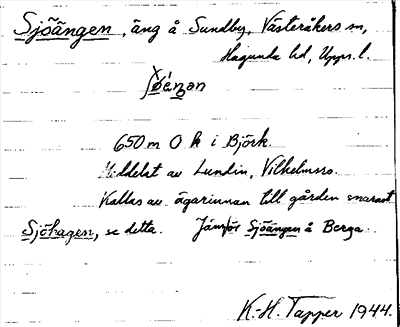 Sjöängen, äng å Sundby, Västeråkers sn,
Hagunda hd, Upps. l.
650 m O k i Björk.
Meddelat av Lundin, Vilhelmsro.
Kallas av ägarinnan till gården snarast
Sjöhagen, se detta. Jämför Sjöängen å Berga.
K.-H. Tapper 1944.